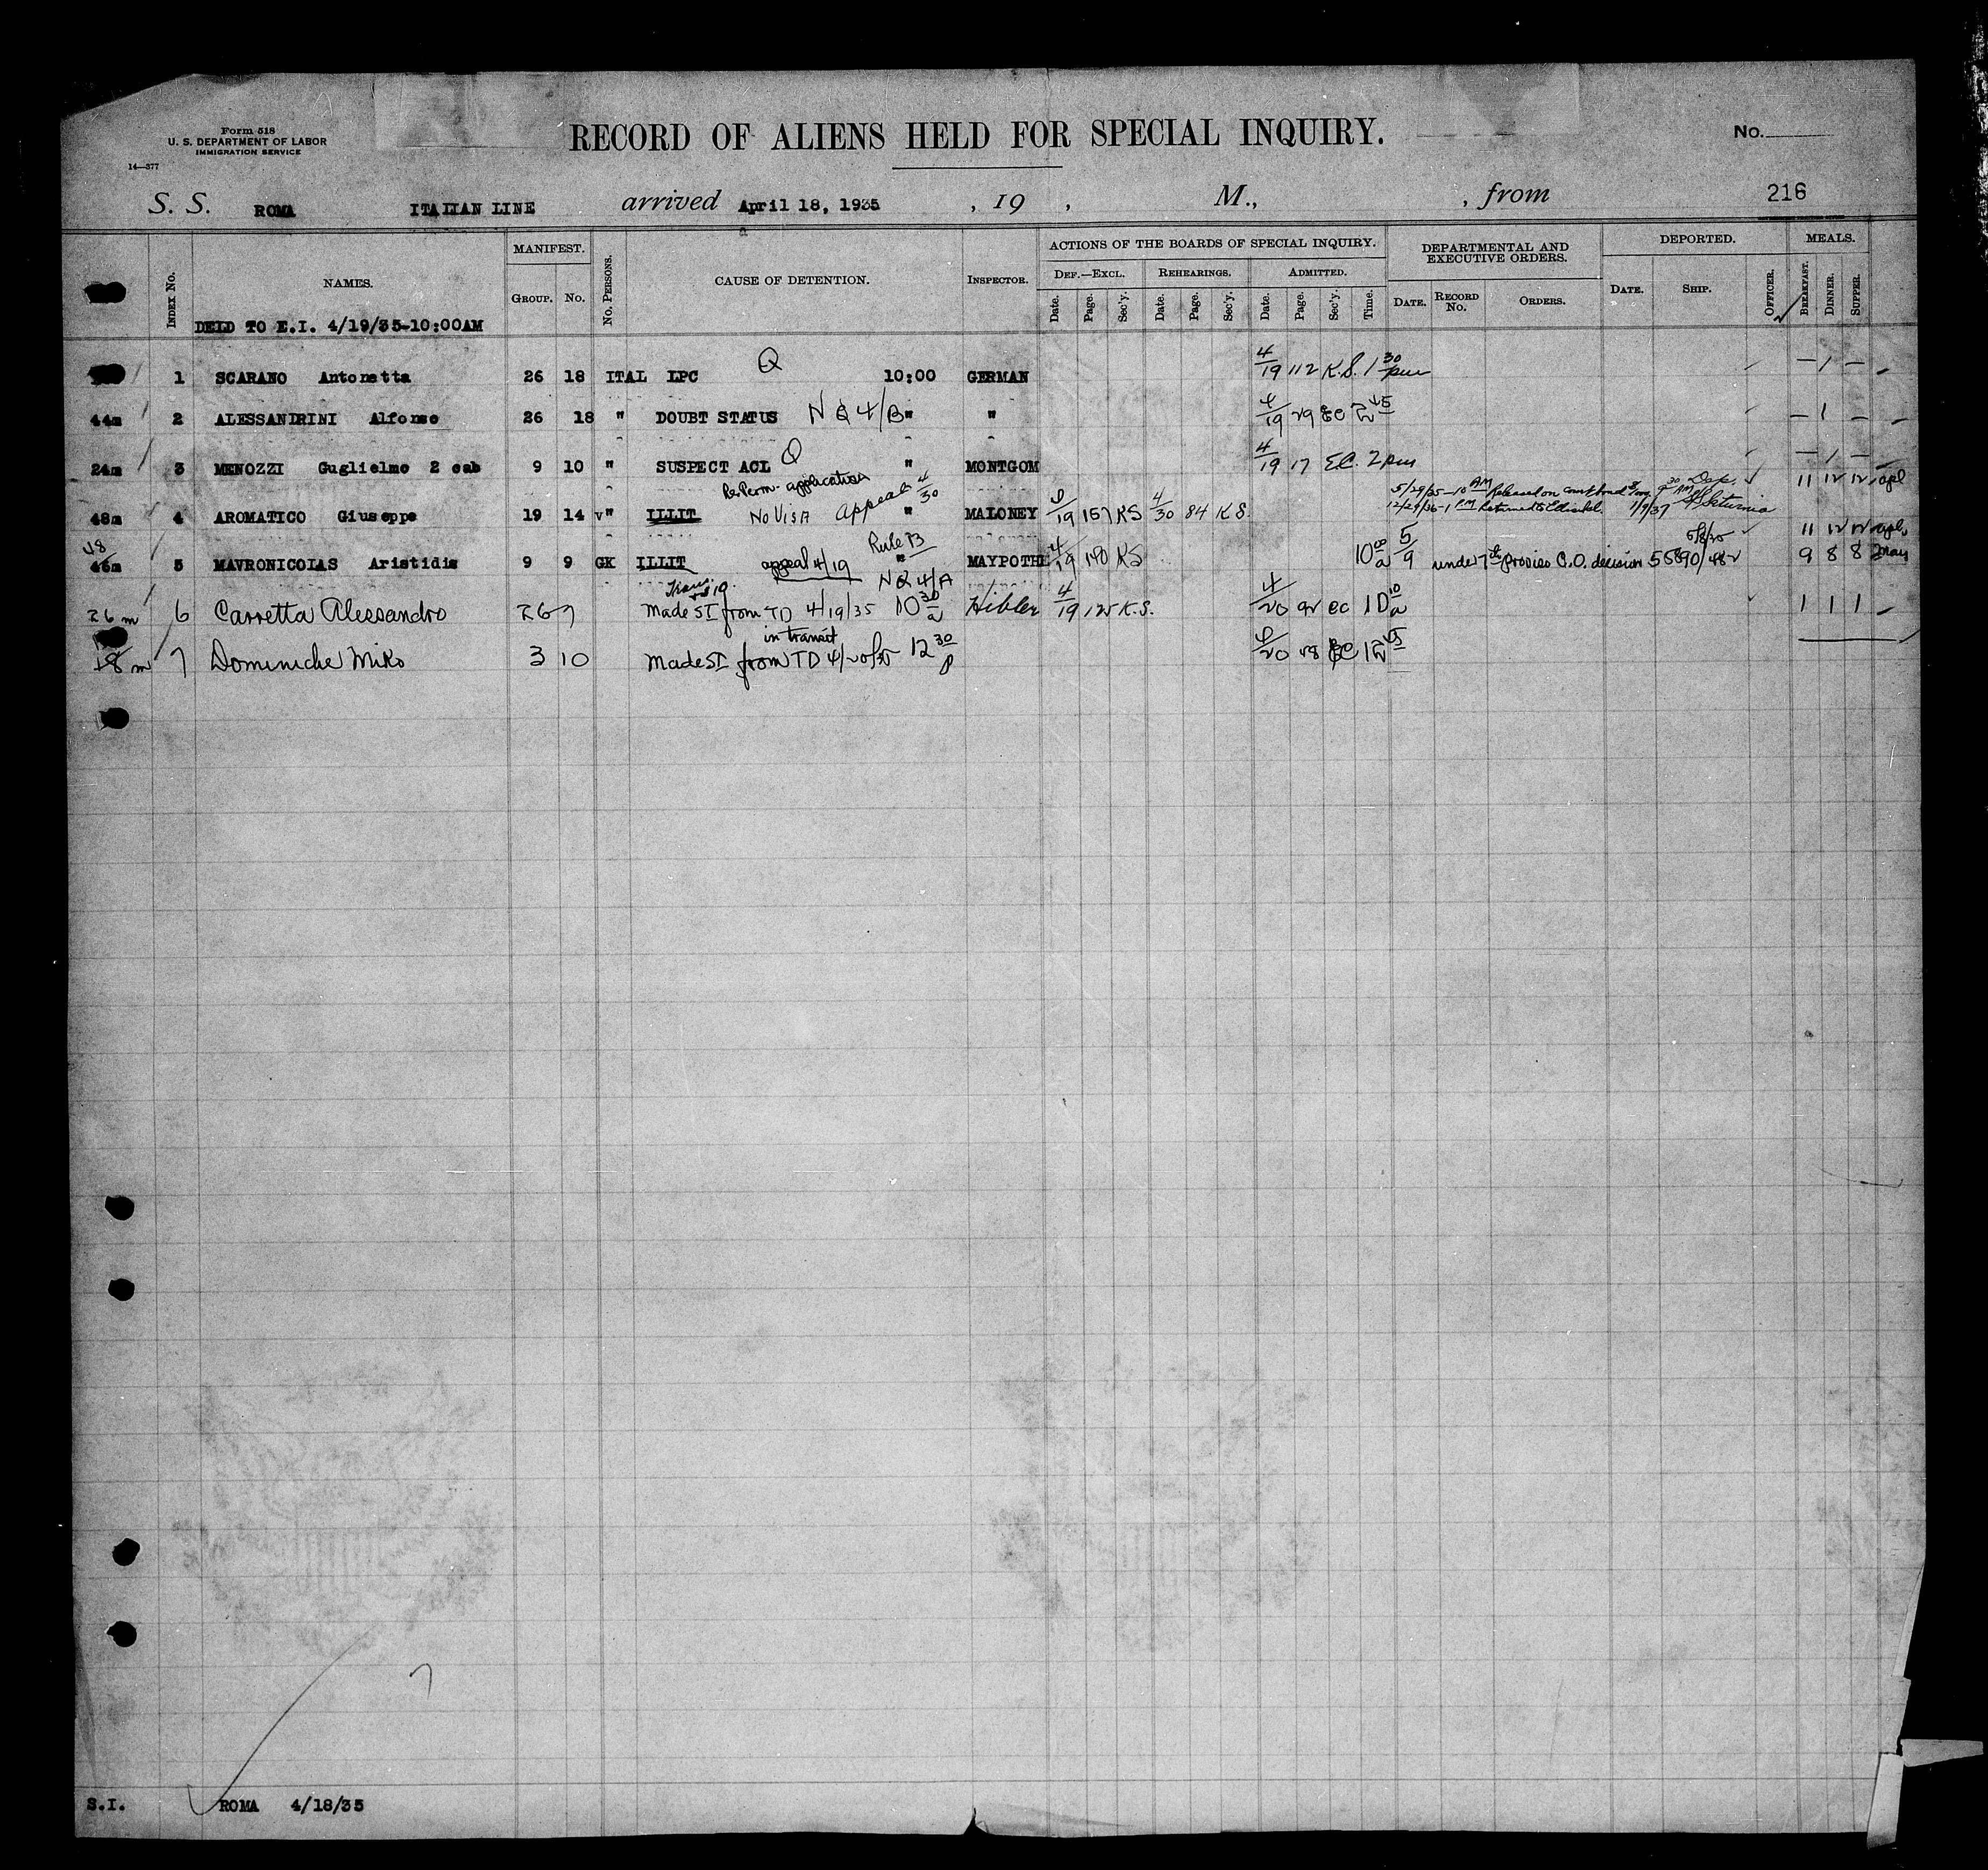 Form 518
U. S. DEPARTMENT OF LABOR
IMMIGRATION SERVICE
14—377
RECORD OF ALIENS HELD FOR SPECIAL INQUIRY.
No.
S. S. ROMA ITALIAN LINE arrived April 18, 1935 , 19 , M., , from 216
INDEX No. NAMES. MANIFEST. GROUP. No. No. PERSONS. CAUSE OF DETENTION. INSPECTOR. ACTIONS OF THE BOARDS OF SPECIAL INQUIRY. DEF.—EXCL. Date. Page. Sec'y. REHEARINGS. Date. Page. Sec'y. ADMITTED. Date. Page. Sec'y. Time. DEPARTMENTAL AND EXECUTIVE ORDERS. DATE. RECORD No. ORDERS. DEPORTED. DATE. SHIP. OFFICER. MEALS. BREAKFAST. DINNER. SUPPER.
DELD TO E.I. 4/19/35-10:00AM
1 SCARANO Antonetta 26 18 ITAL LPC Q 10:00 GERMAN 4/19 112 K.S. 1 30 pm — 1 —
44m 2 ALESSANDRINI Alfonso 26 18 " DOUBT STATUS N Q 4/B " " 4/19 29 EC 2 45 — 1 —
24m 3 MENOZZI Guglielmo 2 cab 9 10 " SUSPECT ACL Q " MONTGOM 4/19 17 E.C. 2 pm — 1 —
48m 4 AROMATICO Giuseppe 19 14 v" ILLIT No Visa Appeal 4/30 " MALONEY 4/19 157 KS 4/30 84 K.S. 5/29/35—10 AM Released on 12/29/36-1 PM Returned to 1/9/37 Dep. Saturnia 11 12 12 apl
48 46m 5 MAVRONICOLAS Aristidis 9 9 GK ILLIT appeal 4/19 Rule B " MAYPOTHE 4/19 140 KS 10 00 a 5/9 under 7th proviso C.O. decision 55890/482 5/8/35 11 12 12 apl 9 8 8 May
26 m 6 Carretta Alessandro 26 7 Made SI from TD 4/19/35 10 30 a N Q 4/A Hibler 4/19 125 K.S. 4/20 92 EC 10 10 a 1 1 1 —
18 m 7 Dominiche Miko 3 10 in transit Made SI from TD 4/20/35 12 30 p 4/20 28 EC 12 45
7
S.I. ROMA 4/18/35